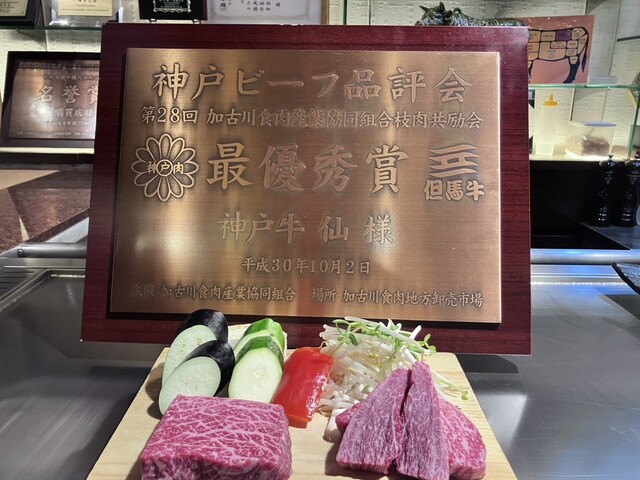 神戸ビーフ品評会
第28回 加古川食肉産業協同組合枝肉共励会
神戸肉
最優秀賞
但馬牛
神戸牛 仙 様
平成30年10月2日
主催 加古川食肉産業協同組合 場所 加古川食肉地方卸売市場
名誉賞